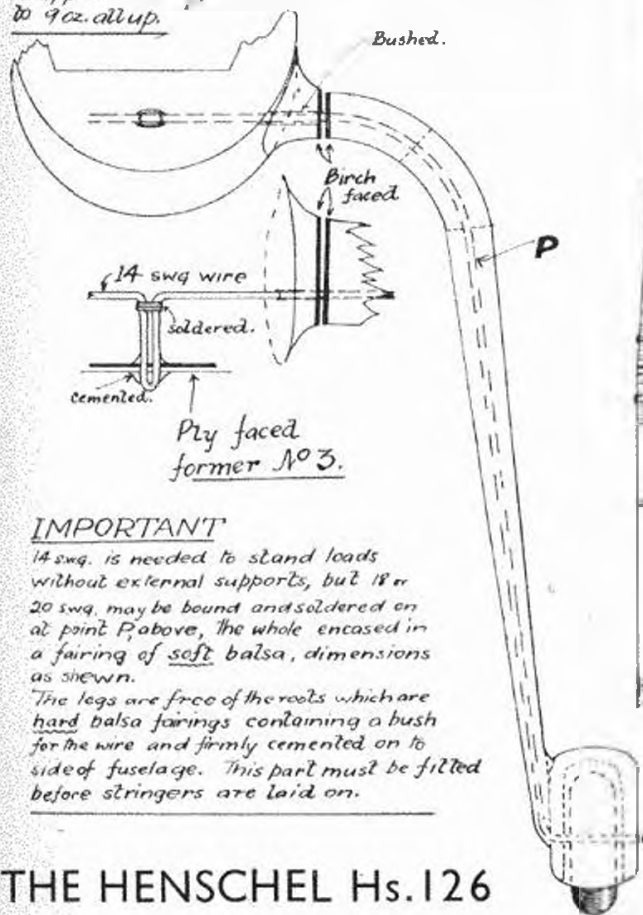 to 9oz. all up.
Bushed.
Birch
faced
P
14 swg wire
soldered.
cemented.
Ply faced
former No 3.
IMPORTANT
14 swg. is needed to stand loads
without external supports, but 18 or
20 swg. may be bound and soldered on
at point P, above, The whole encased in
a fairing of soft balsa, dimensions
as shewn.
The legs are free of the roots which are
hard balsa fairings containing a bush
for the wire and firmly cemented on to
side of fuselage. This part must be fitted
before stringers are laid on.
THE HENSCHEL Hs.126